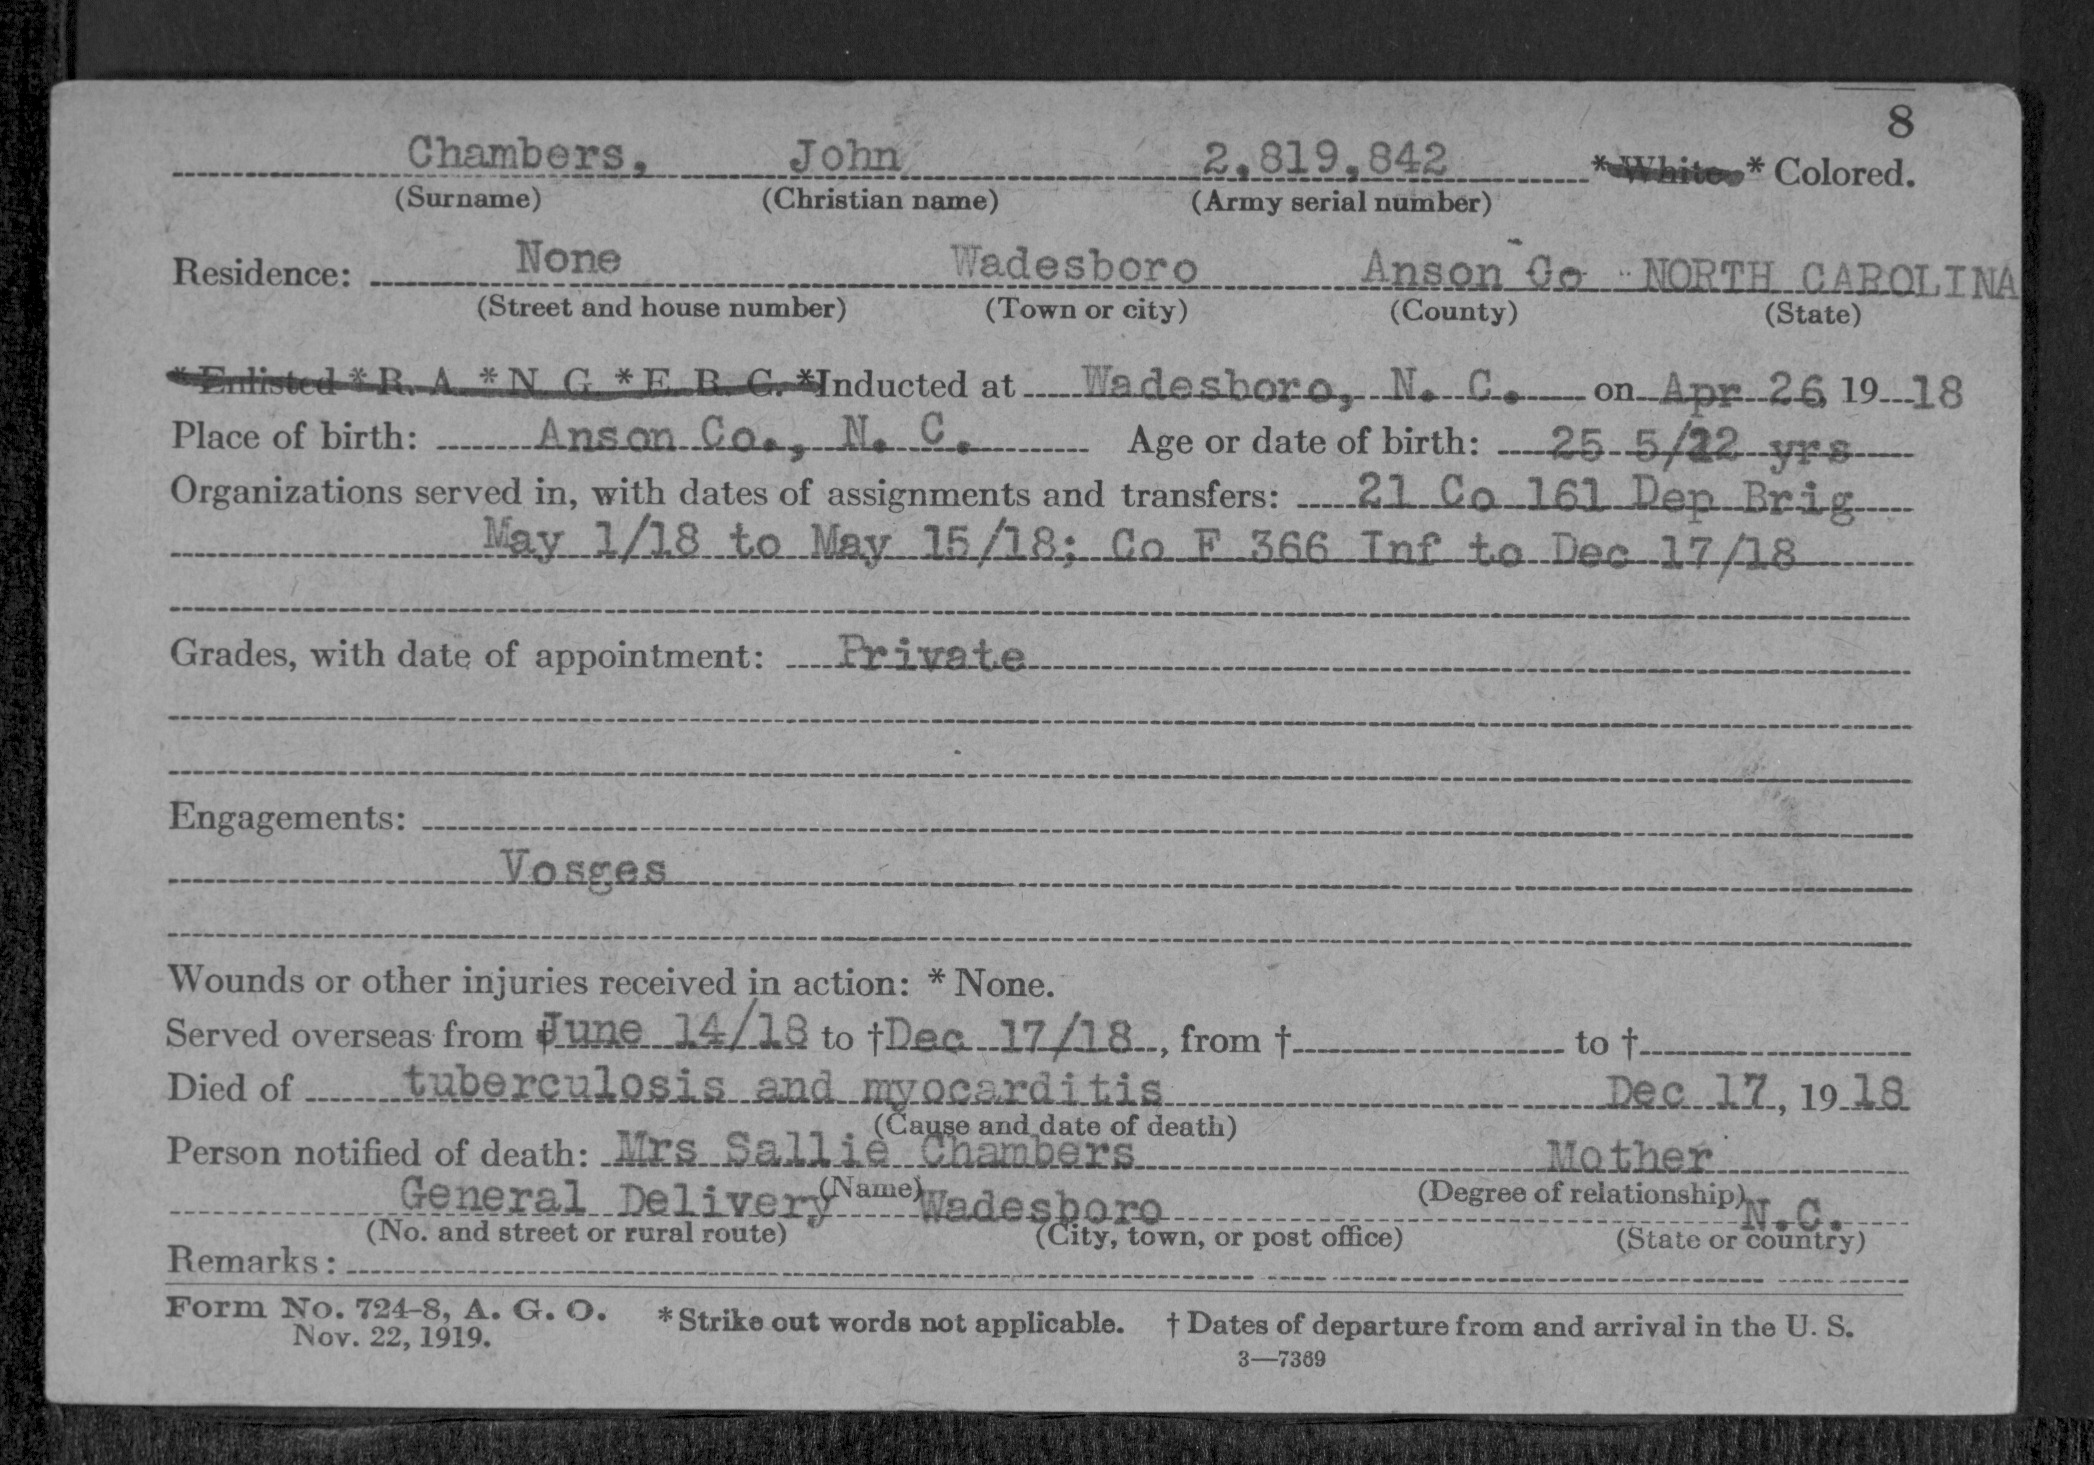 8
Chambers, John 2,819,842 *White * Colored.
(Surname) (Christian name) (Army serial number)
Residence: None Wadesboro Anson Co NORTH CAROLINA
(Street and house number) (Town or city) (County) (State)
* Enlisted * R. A. * N. G. * E. R. C. *Inducted at Wadesboro, N. C. on Apr 26, 19 18
Place of birth: Anson Co., N. C. Age or date of birth: 25 5/12 yrs
Organizations served in, with dates of assignments and transfers: 21 Co 161 Dep Brig
May 1/18 to May 15/18; Co F 366 Inf to Dec 17/18
Grades, with date of appointment: Private
Engagements:
Vosges
Wounds or other injuries received in action: * None.
Served overseas from † June 14/18 to † Dec 17/18, from † to †
Died of tuberculosis and myocarditis Dec 17, 19 18
(Cause and date of death)
Person notified of death: Mrs Sallie Chambers Mother
(Name) (Degree of relationship)
General Delivery Wadesboro N.C.
(No. and street or rural route) (City, town, or post office) (State or country)
Remarks:
Form No. 724-8, A. G. O. * Strike out words not applicable. † Dates of departure from and arrival in the U. S.
Nov. 22, 1919.
3—7369